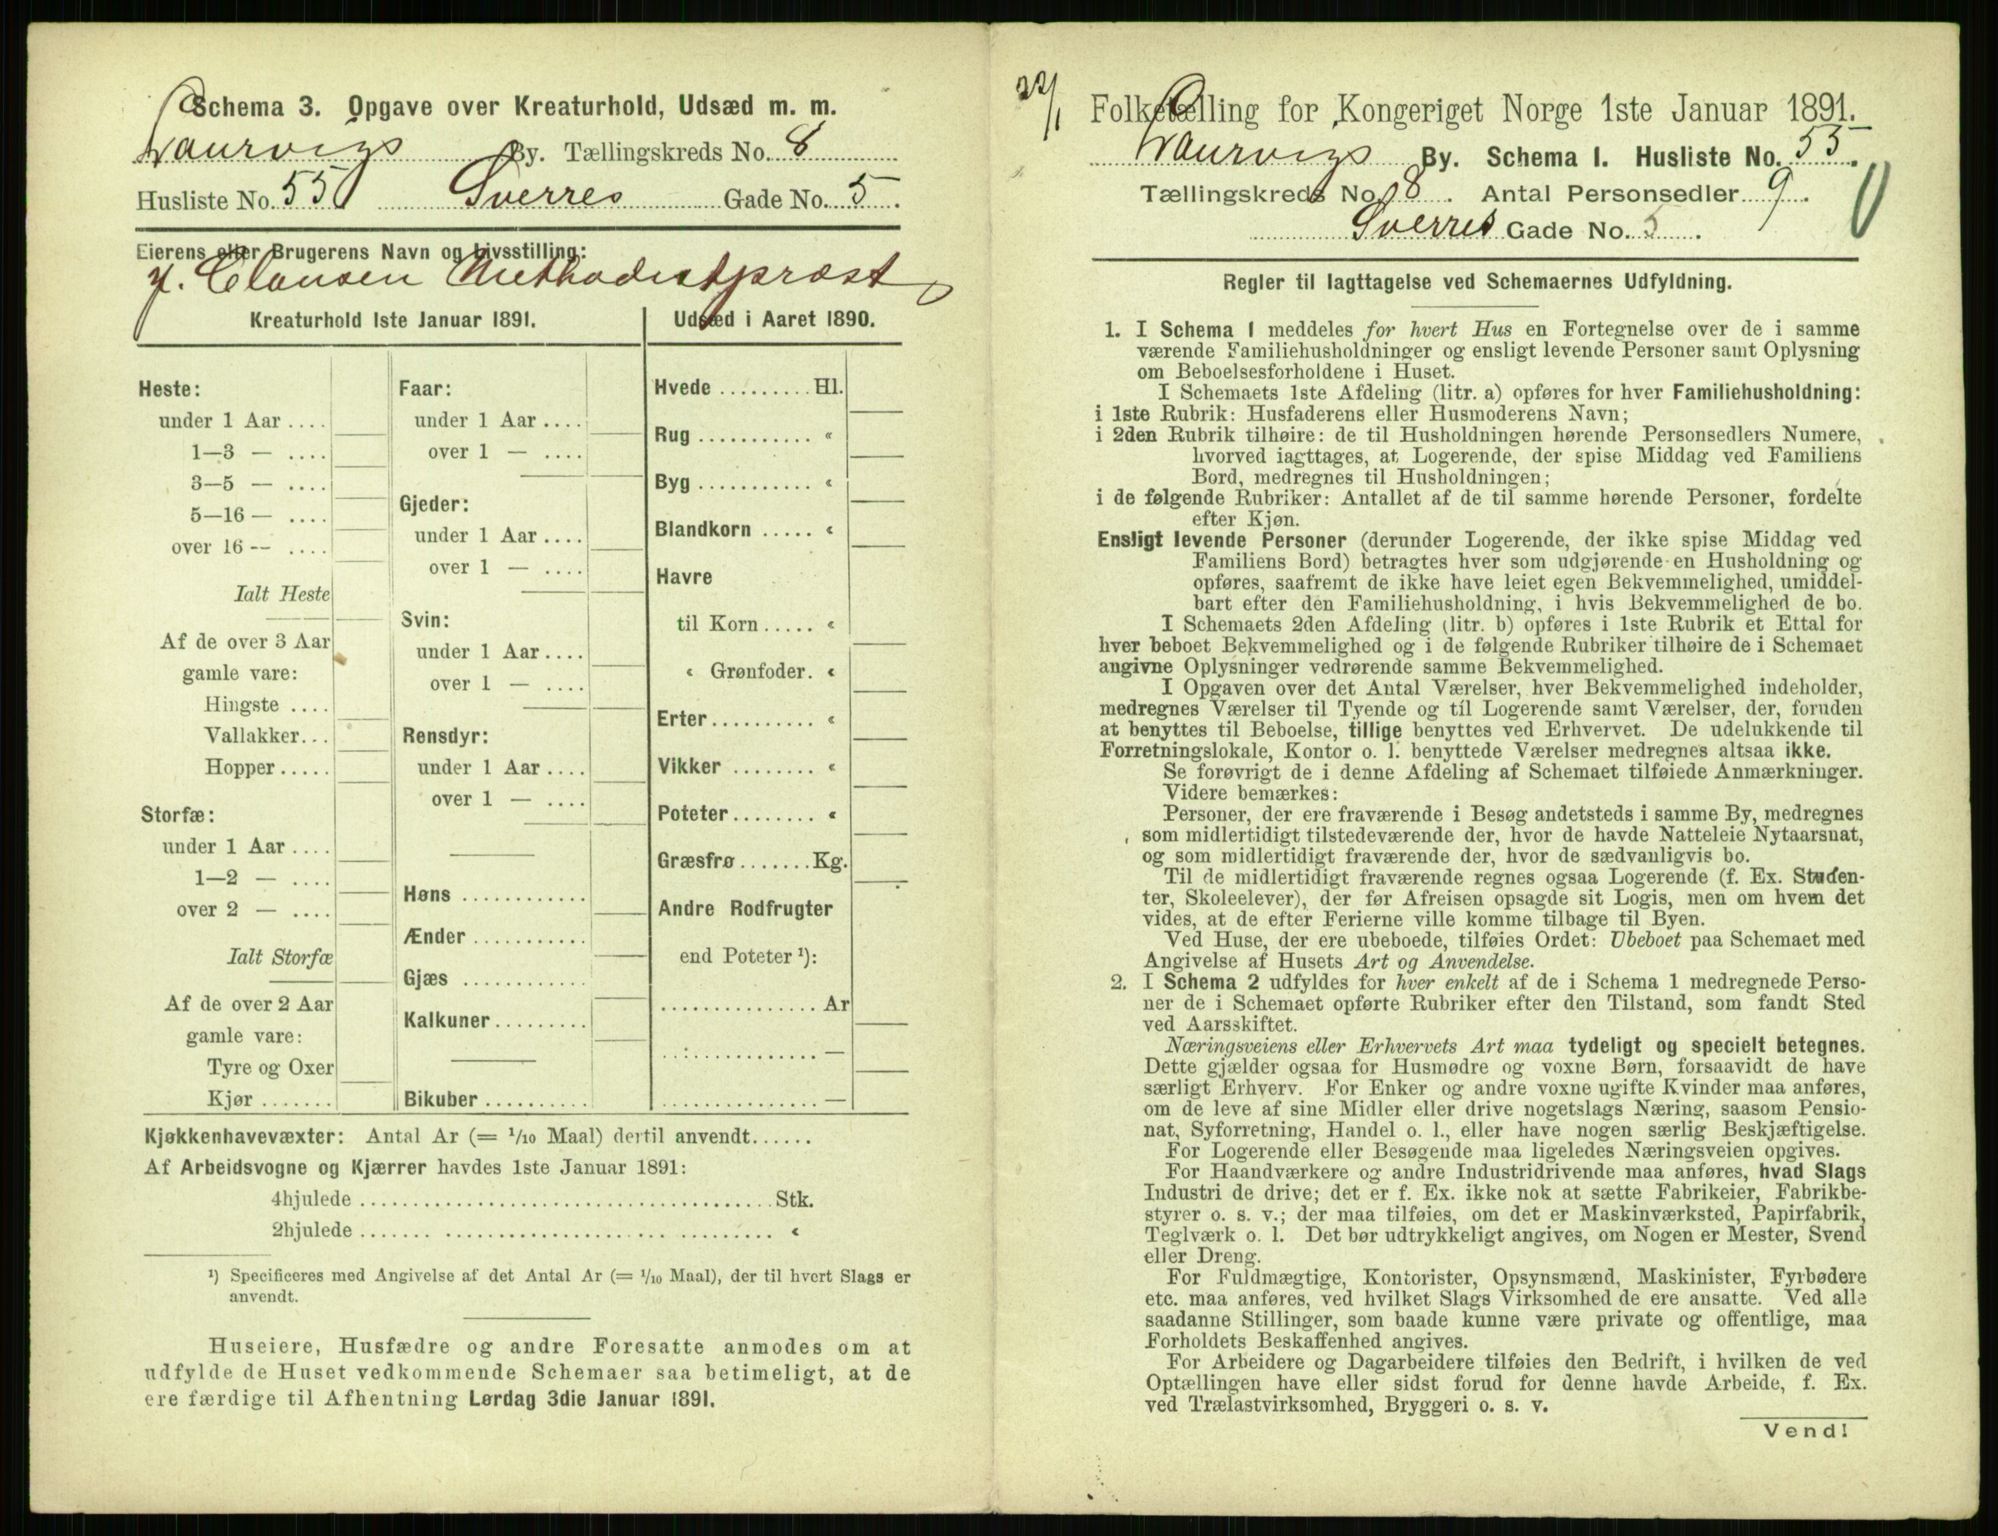 Schema 3. Opgave over Kreaturhold, Udsæd m. m.
Laurvigs By. Tællingskreds No. 8
Husliste No. 55 Sverres Gade No. 5.
Eierens eller Brugerens Navn og Livsstilling:
J. Clausen Methodistpræst
Kreaturhold 1ste Januar 1891.
Heste:
under 1 Aar ....
1—3 — ....
3—5 — ....
5—16 — ....
over 16 -- ....
Ialt Heste
Af de over 3 Aar
gamle vare:
Hingste ....
Vallakker...
Hopper.....
Storfæ:
under 1 Aar ....
1—2 — ....
over 2 — ....
Ialt Storfæ
Af de over 2 Aar
gamle vare:
Tyre og Oxer
Kjør .......
Faar:
under 1 Aar ....
over 1 — ....
Gjeder:
under 1 Aar ....
over 1 — ....
Svin:
under 1 Aar ....
over 1 — ....
Rensdyr:
under 1 Aar ....
over 1 — ....
Høns ............
Ænder ...........
Gjæs ............
Kalkuner.........
Bikuber ..........
Udsæd i Aaret 1890.
Hvede ......... Hl.
Rug ........... «
Byg ........... «
Blandkorn ..... «
Havre
til Korn ..... «
« Grønfoder. «
Erter.......... «
Vikker ........ «
Poteter........ «
Græsfrø .......Kg.
Andre Rodfrugter
end Poteter ¹):
............... Ar
............... —
............... —
Kjøkkenhavevæxter: Antal Ar (= 1/10 Maal) dertil anvendt......
Af Arbeidsvogne og Kjærrer havdes 1ste Januar 1891:
4hjulede ........................................ Stk.
2hjulede ........................................ «
¹) Specificeres med Angivelse af det Antal Ar (= 1/10 Maal), der til hvert Slags er
anvendt.
Huseiere, Husfædre og andre Foresatte anmodes om at
udfylde de Huset vedkommende Schemaer saa betimeligt, at de
ere færdige til Afhentning Lørdag 3die Januar 1891.
22/1
Folketælling for Kongeriget Norge 1ste Januar 1891.
Laurvigs By. Schema I. Husliste No. 55.
Tællingskreds No. 8. Antal Personsedler 9.
Sverres Gade No. 5.
Regler til Iagttagelse ved Schemaernes Udfyldning.
1. I Schema 1 meddeles for hvert Hus en Fortegnelse over de i samme
værende Familiehusholdninger og ensligt levende Personer samt Oplysning
om Beboelsesforholdene i Huset.
I Schemaets 1ste Afdeling (litr. a) opføres for hver Familiehusholdning:
i 1ste Rubrik: Husfaderens eller Husmoderens Navn;
i 2den Rubrik tilhøire: de til Husholdningen hørende Personsedlers Numere,
hvorved iagttages, at Logerende, der spise Middag ved Familiens
Bord, medregnes til Husholdningen;
i de følgende Rubriker: Antallet af de til samme hørende Personer, fordelte
efter Kjøn.
Ensligt levende Personer (derunder Logerende, der ikke spise Middag ved
Familiens Bord) betragtes hver som udgjørende en Husholdning og
opføres, saafremt de ikke have leiet egen Bekvemmelighed, umiddel-
bart efter den Familiehusholdning, i hvis Bekvemmelighed de bo.
I Schemaets 2den Afdeling (litr. b) opføres i 1ste Rubrik et Ettal for
hver beboet Bekvemmelighed og i de følgende Rubriker tilhøire de i Schemaet
angivne Oplysninger vedrørende samme Bekvemmelighed.
I Opgaven over det Antal Værelser, hver Bekvemmelighed indeholder,
medregnes Værelser til Tyende og til Logerende samt Værelser, der, foruden
at benyttes til Beboelse, tillige benyttes ved Erhvervet. De udelukkende til
Forretningslokale, Kontor o. l. benyttede Værelser medregnes altsaa ikke.
Se forøvrigt de i denne Afdeling af Schemaet tilføiede Anmærkninger.
Videre bemærkes:
Personer, der ere fraværende i Besøg andetsteds i samme By, medregnes
som midlertidigt tilstedeværende der, hvor de havde Natteleie Nytaarsnat,
og som midlertidigt fraværende der, hvor de sædvanligvis bo.
Til de midlertidigt fraværende regnes ogsaa Logerende (f. Ex. Studen-
ter, Skoleelever), der før Afreisen opsagde sit Logis, men om hvem det
vides, at de efter Ferierne ville komme tilbage til Byen.
Ved Huse, der ere ubeboede, tilføies Ordet: Ubeboet paa Schemaet med
Angivelse af Husets Art og Anvendelse.
2. I Schema 2 udfyldes for hver enkelt af de i Schema 1 medregnede Perso-
ner de i Schemaet opførte Rubriker efter den Tilstand, som fandt Sted
ved Aarsskiftet.
Næringsveiens eller Erhvervets Art maa tydeligt og specielt betegnes.
Dette gjælder ogsaa for Husmødre og voxne Børn, forsaavidt de have
særligt Erhverv. For Enker og andre voxne ugifte Kvinder maa anføres,
om de leve af sine Midler eller drive nogetslags Næring, saasom Pensio-
nat, Syforretning, Handel o. l., eller have nogen særlig Beskjæftigelse.
For Logerende eller Besøgende maa ligeledes Næringsveien opgives.
For Haandværkere og andre Industridrivende maa anføres, hvad Slags
Industri de drive; det er f. Ex. ikke nok at sætte Fabrikeier, Fabrikbe-
styrer o. s. v.; der maa tilføies, om det er Maskinværksted, Papirfabrik,
Teglværk o. l. Det bør udtrykkeligt angives, om Nogen er Mester, Svend
eller Dreng.
For Fuldmægtige, Kontorister, Opsynsmænd, Maskinister, Fyrbødere
etc. maa anføres, ved hvilket Slags Virksomhed de ere ansatte. Ved alle
saadanne Stillinger, som baade kunne være private og offentlige, maa
Forholdets Beskaffenhed angives.
For Arbeidere og Dagarbeidere tilføies den Bedrift, i hvilken de ved
Optællingen have eller sidst forud for denne havde Arbeide, f. Ex.
ved Trælastvirksomhed, Bryggeri o. s. v.
Vend!